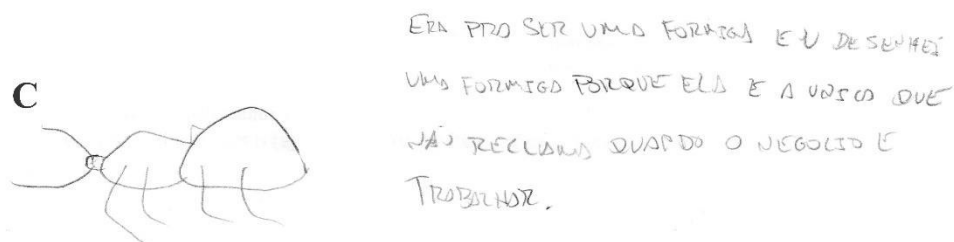 C
ERA PRA SER UMA FORMIGA EU DESENHEI
UMA FORMIGA PORQUE ELA E A UNICA QUE
NÃO RECLAMA QUANDO O NEGOCIO E
TRABALHAR.